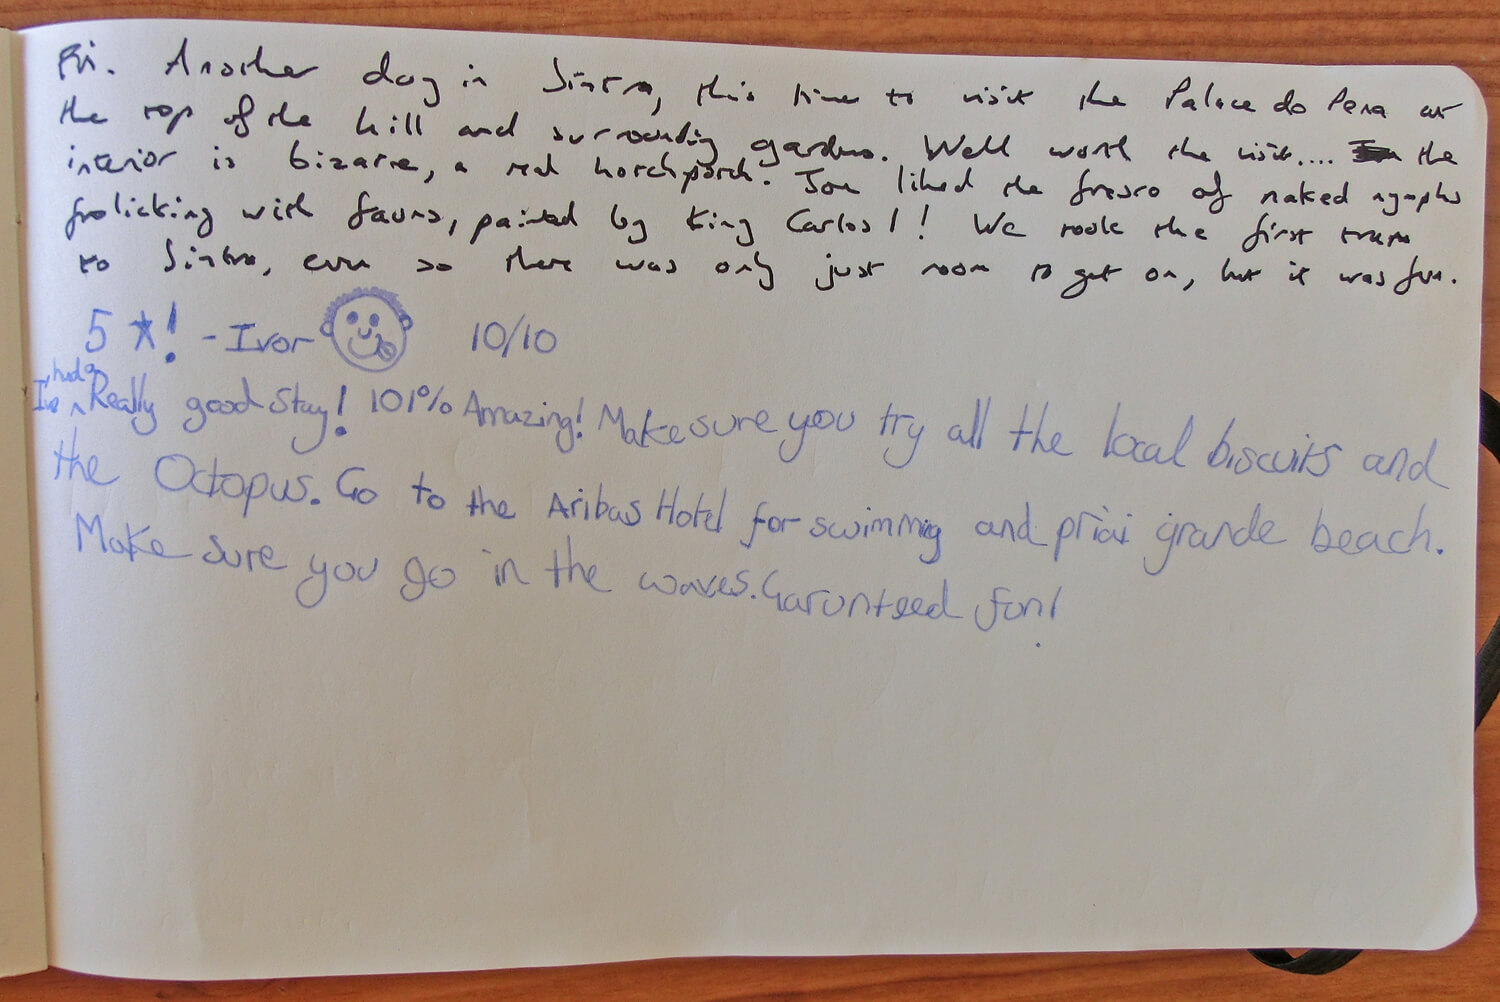 Fri. Another day in Sintra, this time to visit the Palace do Pena at
the top of the hill and surrounding gardens. Well worth the visit.... the
interior is bizarre, a real hotchpotch. Jon liked the fresco of naked nymphs
frolicking with fauns, painted by King Carlos I! We took the first tram
to Sintra, even so there was only just room to get on, but it was fun.
5 ★! - Ivor 10/10
I've had a Really good stay! 101% Amazing! Make sure you try all the local biscuits and
the Octopus. Go to the Aribas Hotel for swimming and priai grande beach.
Make sure you go in the waves. Garunteed fun!